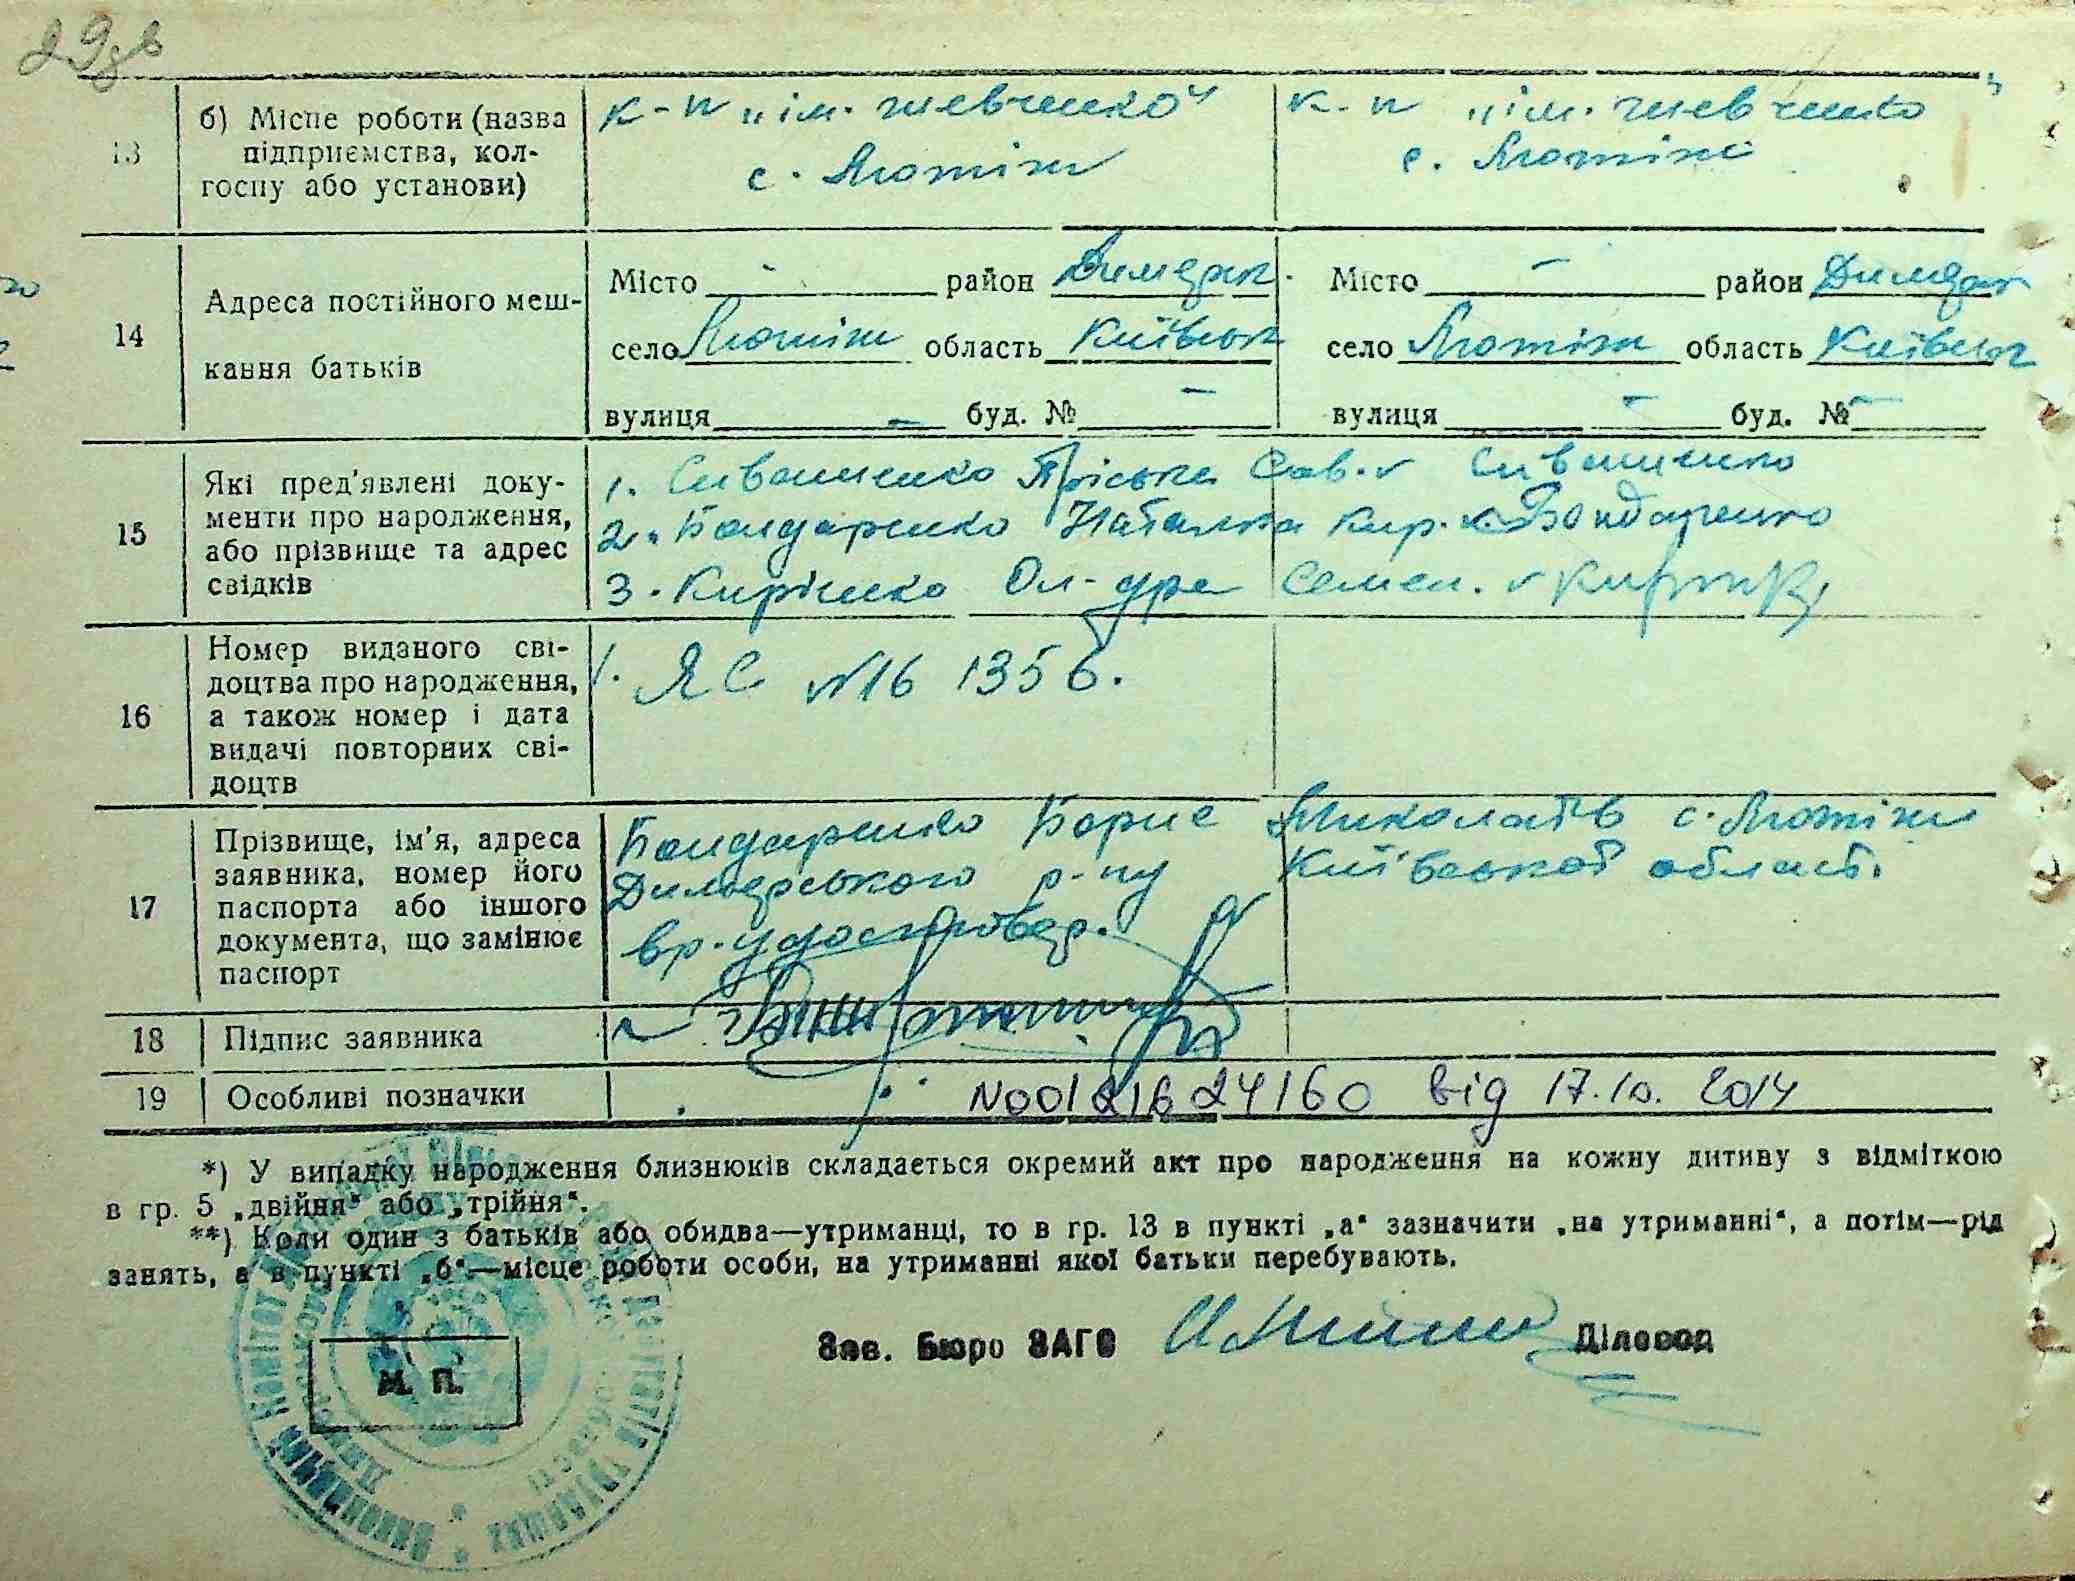 29зв
13 б) Місце роботи (назва підприємства, колгоспу або установи)
к-п „ім. Шевченко“ к-п „ім. Шевченко“
с. Лютіж с. Лютіж
14 Адреса постійного мешкання батьків
Місто - район Димерськ. Місто - район Димерськ
село Лютіж область Київськ село Лютіж область Київськ
вулиця - буд. № - вулиця - буд. № -
15 Які пред'явлені документи про народження, або прізвище та адрес свідків
1. Сивашенко Пріська Сав. Сивашенко
2. Бондаренко Наталка Кир. Бондаренко
3. Кирієнко Ол-дра Семен.
16 Номер виданого свідоцтва про народження, а також номер і дата видачі повторних свідоцтв
1. ЯС №16 1356.
17 Прізвище, ім'я, адреса заявника, номер його паспорта або іншого документа, що замінює паспорт
Бондаренко Борис Миколаїв с. Лютіж
Димерського р-ну Київської област.
вр. удостовер.
18 Підпис заявника
19 Особливі позначки
N00121624160 від 17.10.2014
*) У випадку народження близнюків складається окремий акт про народження на кожну дитину з відміткою
в гр. 5 „двійня“ або „трійня“.
**) Коли один з батьків або обидва—утриманці, то в гр. 13 в пункті „а“ зазначити „на утриманні“, а потім—рід
занять, а в пункті „б“—місце роботи особи, на утриманні якої батьки перебувають.
Зав. Бюро ЗАГС Діловод
М. П.